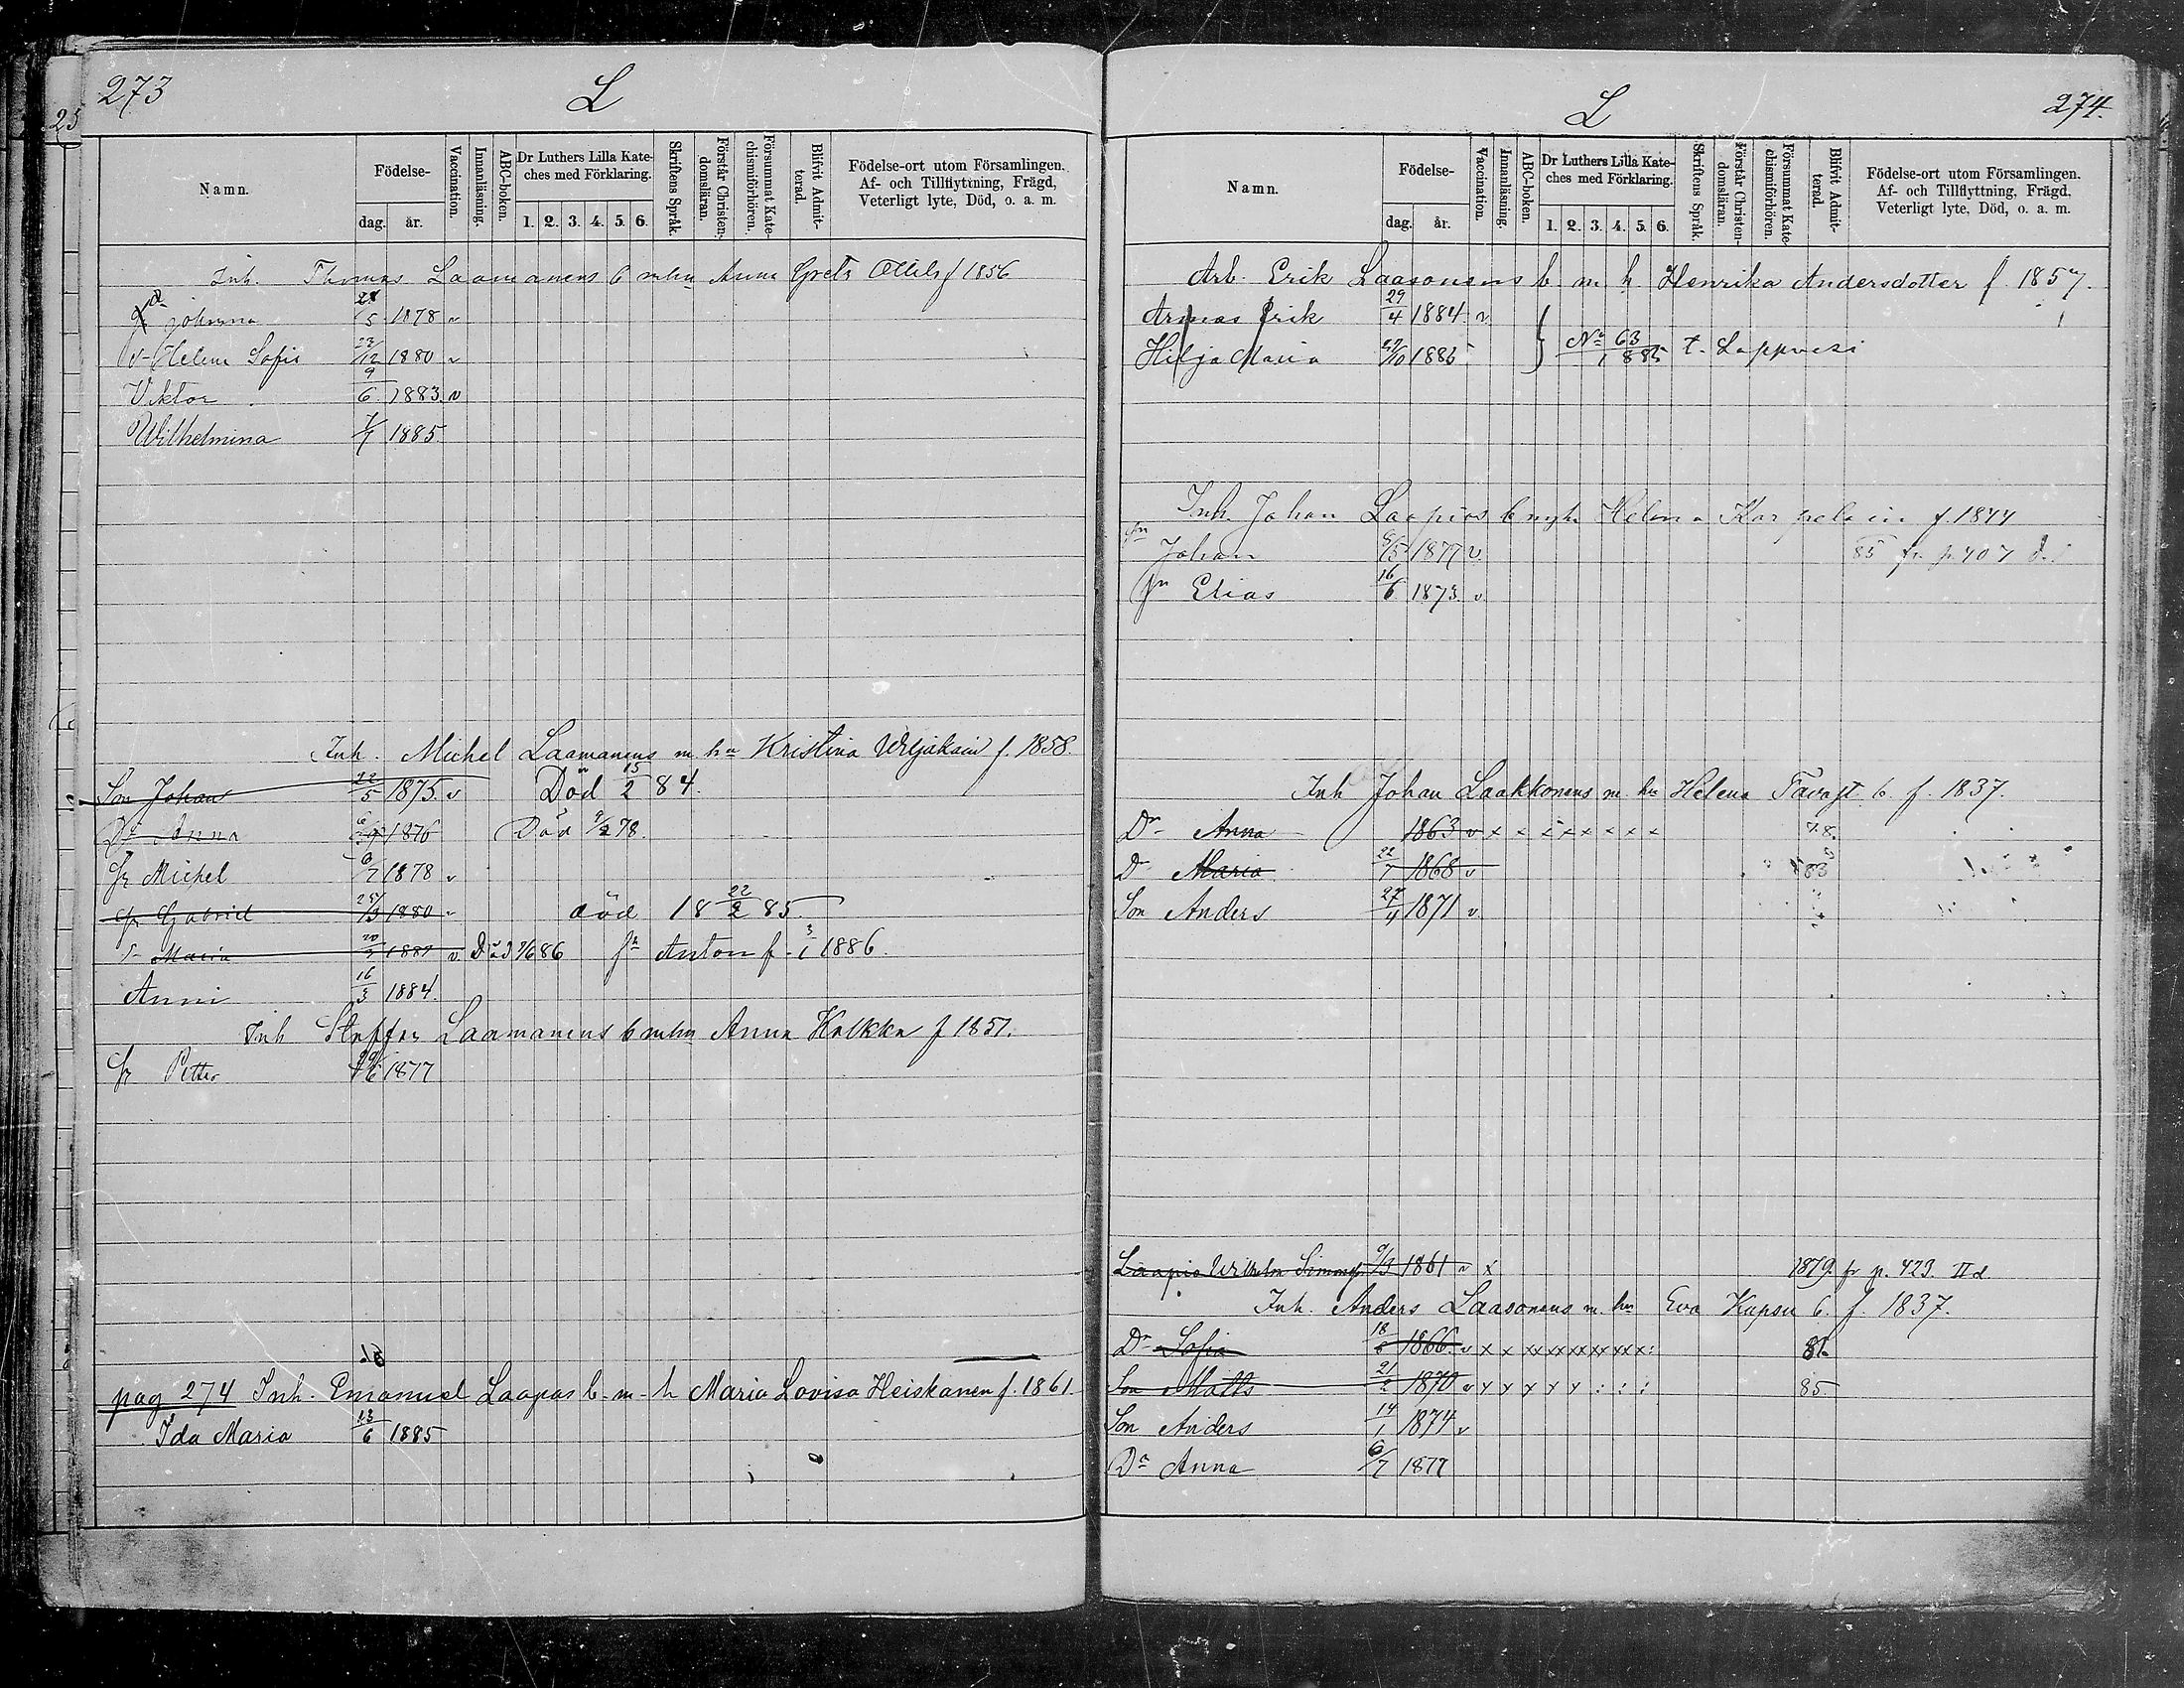 273
L
Namn.
Födelse-
dag.
år.
Vaccination.
Innanläsning.
ABC-boken.
Dr Luthers Lilla Kate-
ches med Förklaring.
1. 2. 3. 4. 5. 6.
Skriftens Språk.
Förstår Christen-
domsläran.
Försummat Kate-
chismiförhören.
Blifvit Admit-
terad.
Födelse-ort utom Församlingen.
Af- och Tillflyttning, Frägd,
Veterligt lyte, Död, o. a. m.
Inh. Thomas Laamanens b mhu Anna Greta f 1856
Johanna 5 1878 v
Helena Sofia 23/12 1880 v
Viktor 9/6 1883. v
Wilhelmina 1885.
Inh. Michel Laamanens m hu Kristina f. 1858.
Son Johan 22/5 1875. v Död 15/2 84.
Dr Anna 1876 Död 9/2 78.
Michel 6/7 1878 v
Gabriel 25/3 1880 v död 18 22/2 85.
Maria 20/3 1881 v. Död 7/6 86 Anton f. 3/1 1886.
Anni 16/3 1884.
Inh Steffan Laamanens b mhu Anna Kalkka f 1851.
Petter 1877
pag 274 Inh. Emanuel Laapas b- m- h Maria Lovisa Heiskanen f. 1861.
Ida Maria 13/6 1885
L
274.
Namn.
Födelse-
dag.
år.
Vaccination.
Innanläsning.
ABC-boken.
Dr Luthers Lilla Kate-
ches med Förklaring.
1. 2. 3. 4. 5. 6.
Skriftens Språk.
Förstår Christen-
domsläran.
Försummat Kate-
chismiförhören.
Blifvit Admit-
terad.
Födelse-ort utom Församlingen.
Af- och Tillflyttning, Frägd.
Veterligt lyte, Död, o. a. m.
Arb. Erik Laasonens b. m. h. Henrika Andersdotter f. 1857.
Armas Erik 29/4 1884. v.
Hilja Maria 1885 } No 63/1885 t. Lappvesi
Inh. Johan Laapias b mhu Helena Karpelain f. 1844
Johan 1877 v 85 fr p. 407 d.
Elias 16/6 1873. v.
Inh Johan Laakkonens m. hu Helena Tavast b. f. 1837.
Dr Anna 1863 v x x x x x x x x 78.
Dr Maria 22/7 1868 v 83
Son Anders 27/4 1871 v.
Laapio Wilhelm Simonss. 9/3 1861 v x 1879. fr p. 423. II d.
Inh. Anders Laasonens m. hu Eva Kapsu b. f. 1837.
Dr Sofia 18/8 1866. v x x xx xx xx xx xx: 81.
Son Matts 21/2 1870 v x x x x x : : : 85.
Son Anders 14/1 1874 v
Dr Anna 6/7 1877